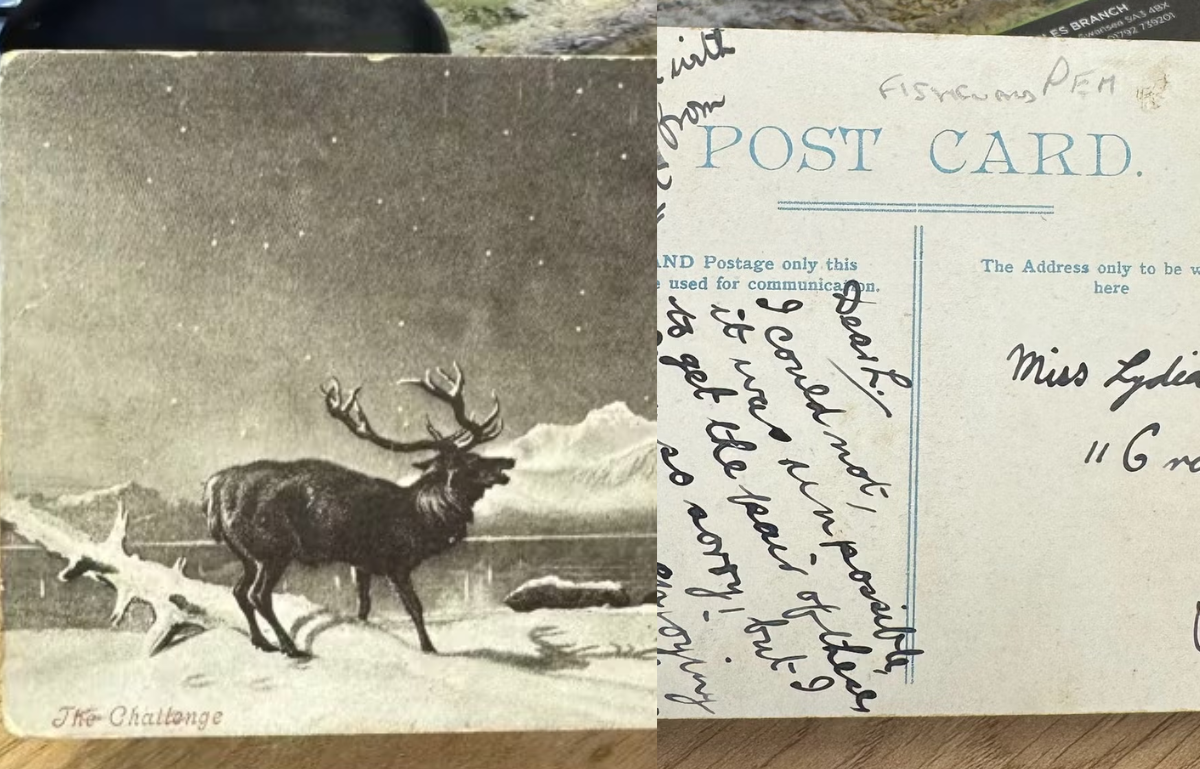 The Challenge
LES BRANCH
Swansea SA3 4BX
01792 739201
PEM
POST CARD.
AND Postage only this
used for communication.
The Address only to be w
here
with
from
Dear L.
I could not,
it was unpossible,
to get the pair of these
so sorry! but I
enjoying
Miss Lydia
11 G